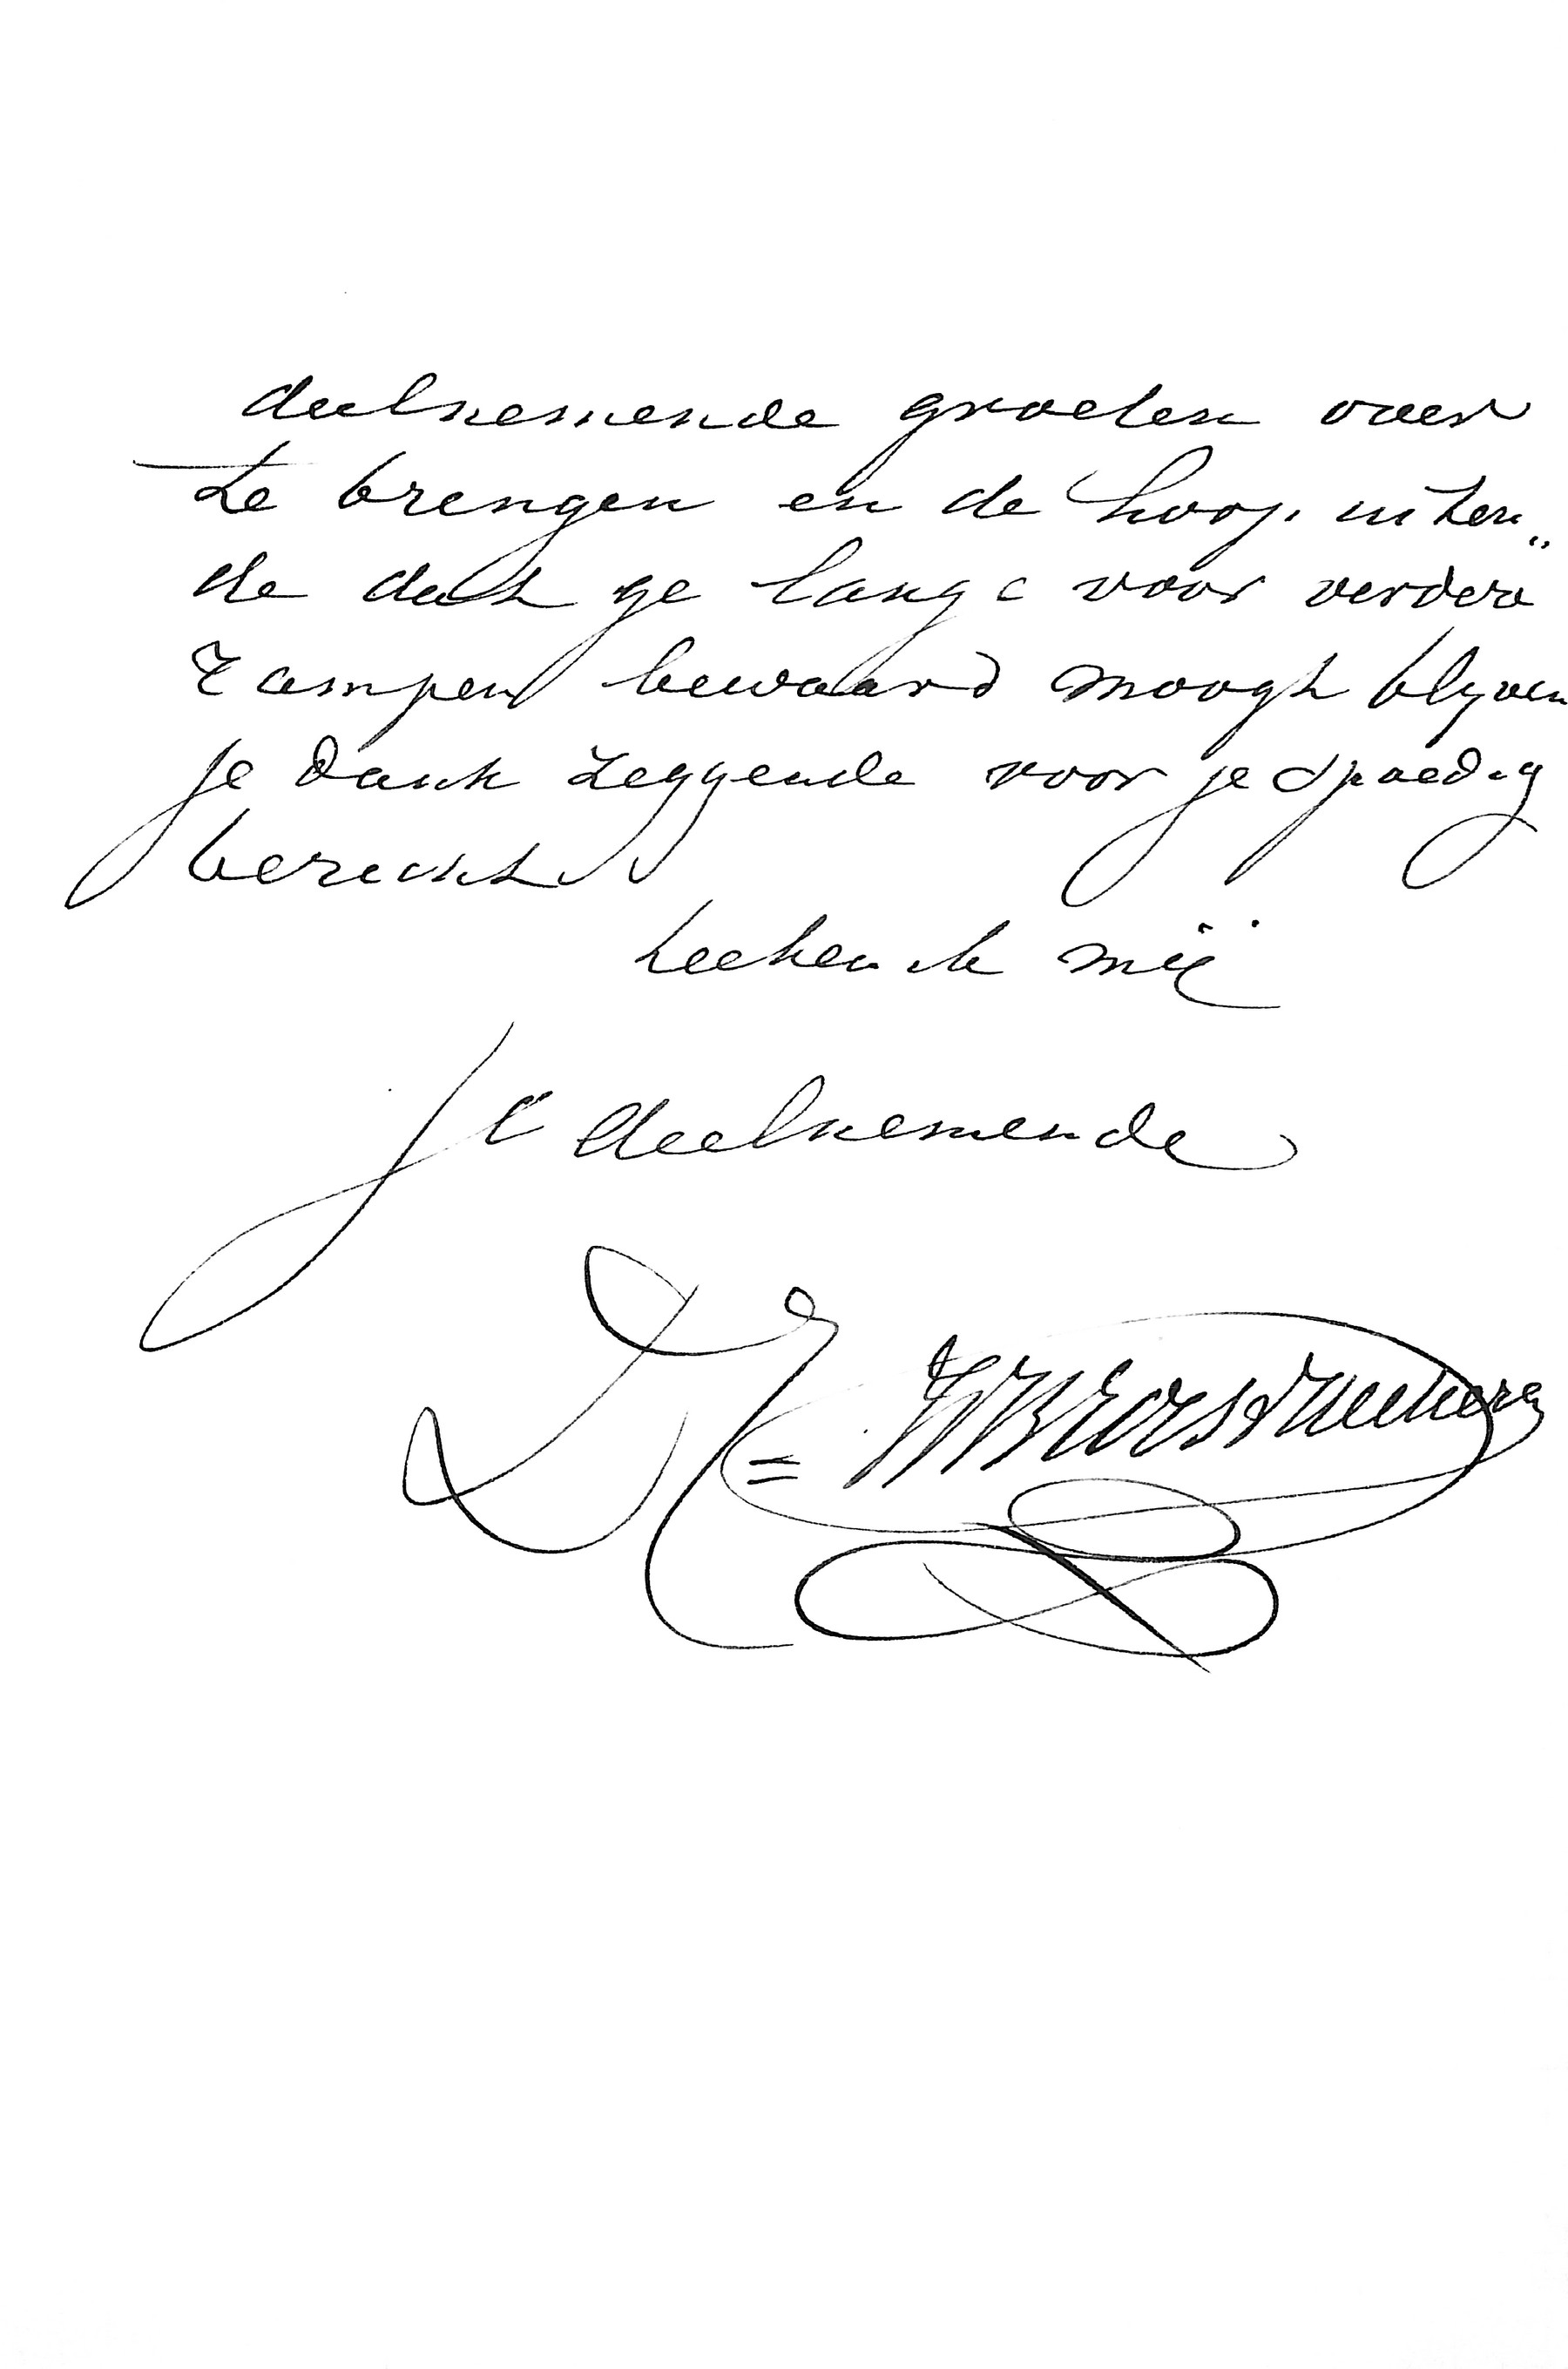 deelnemende groeten over
te brengen en de hoop uiten„
de dat ge lange voor verdere
rampen bewaard moogt blijven
je dank zeggende voor je spoedig
bericht
teeken ik mij
je deelnemende